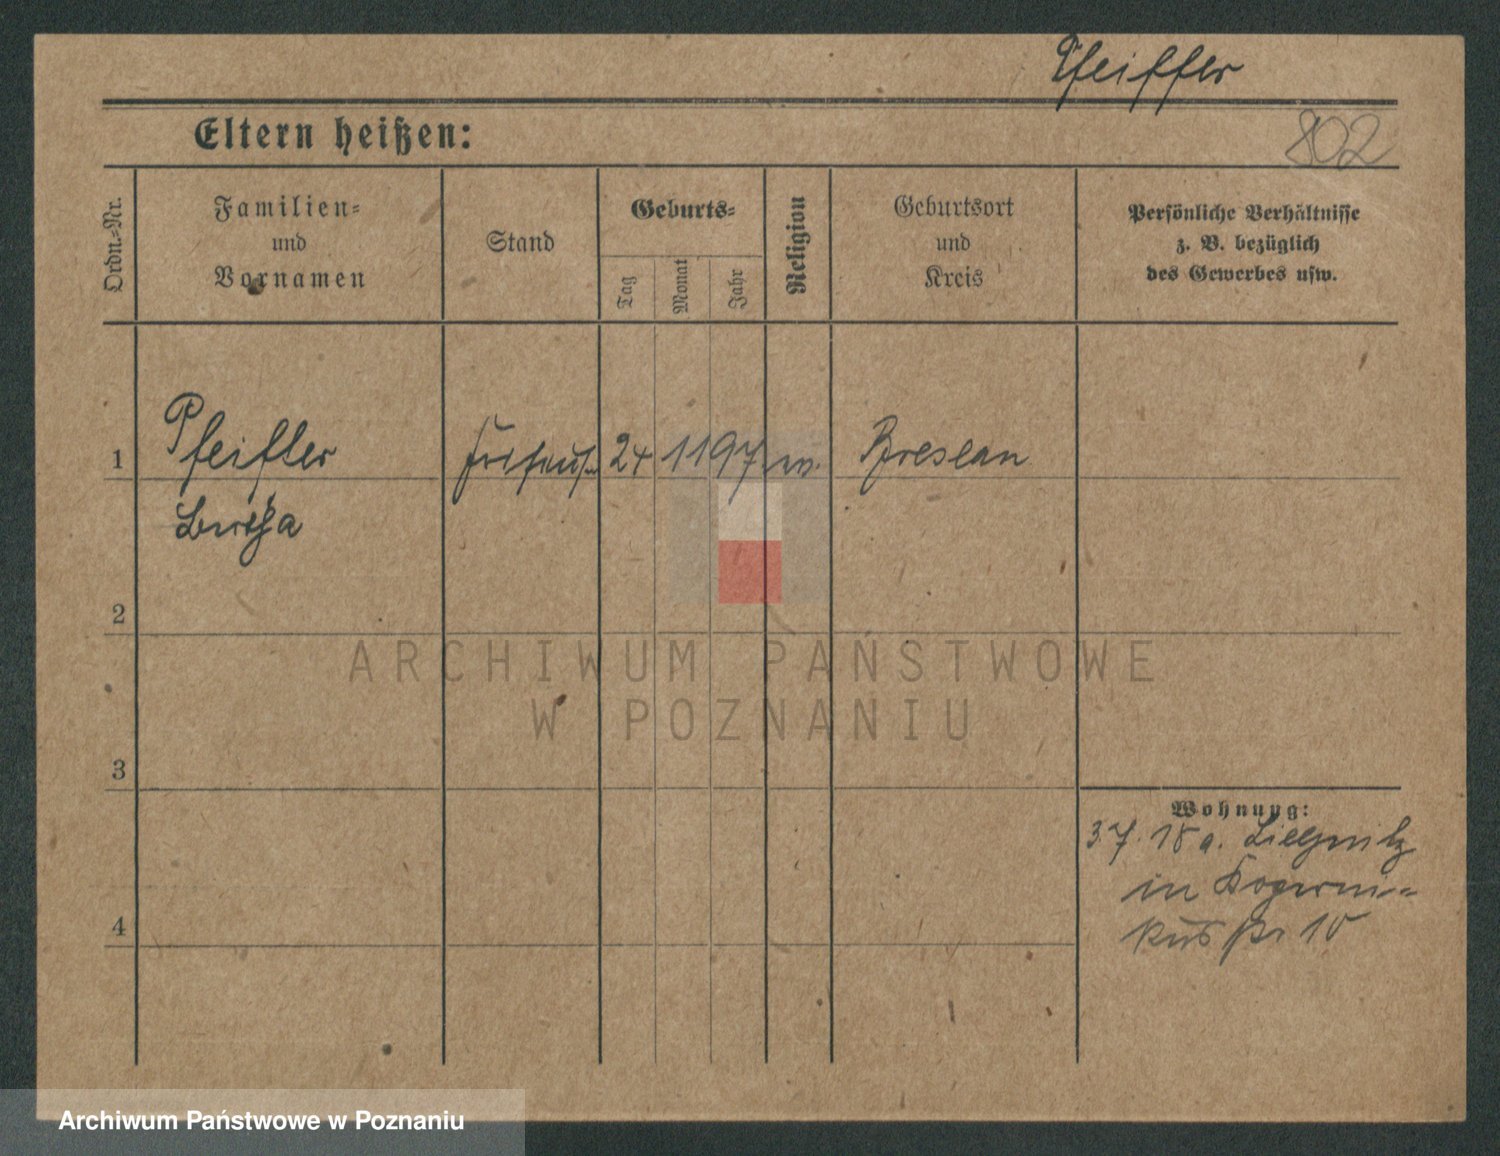 Pfeiffer
802
Eltern heißen:
Ordn.-Nr.
Familien-
und
Vornamen
Stand
Geburts-
Tag
Monat
Jahr
Religion
Geburtsort
und
Kreis
Persönliche Verhältnisse
z. B. bezüglich
des Gewerbes usw.
1
Pfeiffer
24 11 97
Breslau
2
3
4
Wohnung:
3.7.18 a. Liegnitz
in Koperni-
kusstr 10
ARCHIWUM PAŃSTWOWE
W POZNANIU
Archiwum Państwowe w Poznaniu